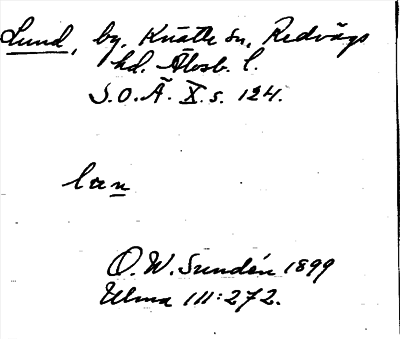 Lund, by. Knätte sn, Redvägs
hd. Älvsb. l.
S.O.Ä. X. s. 124.
lan
O. W. Sundén 1899
Ulma 111:272.